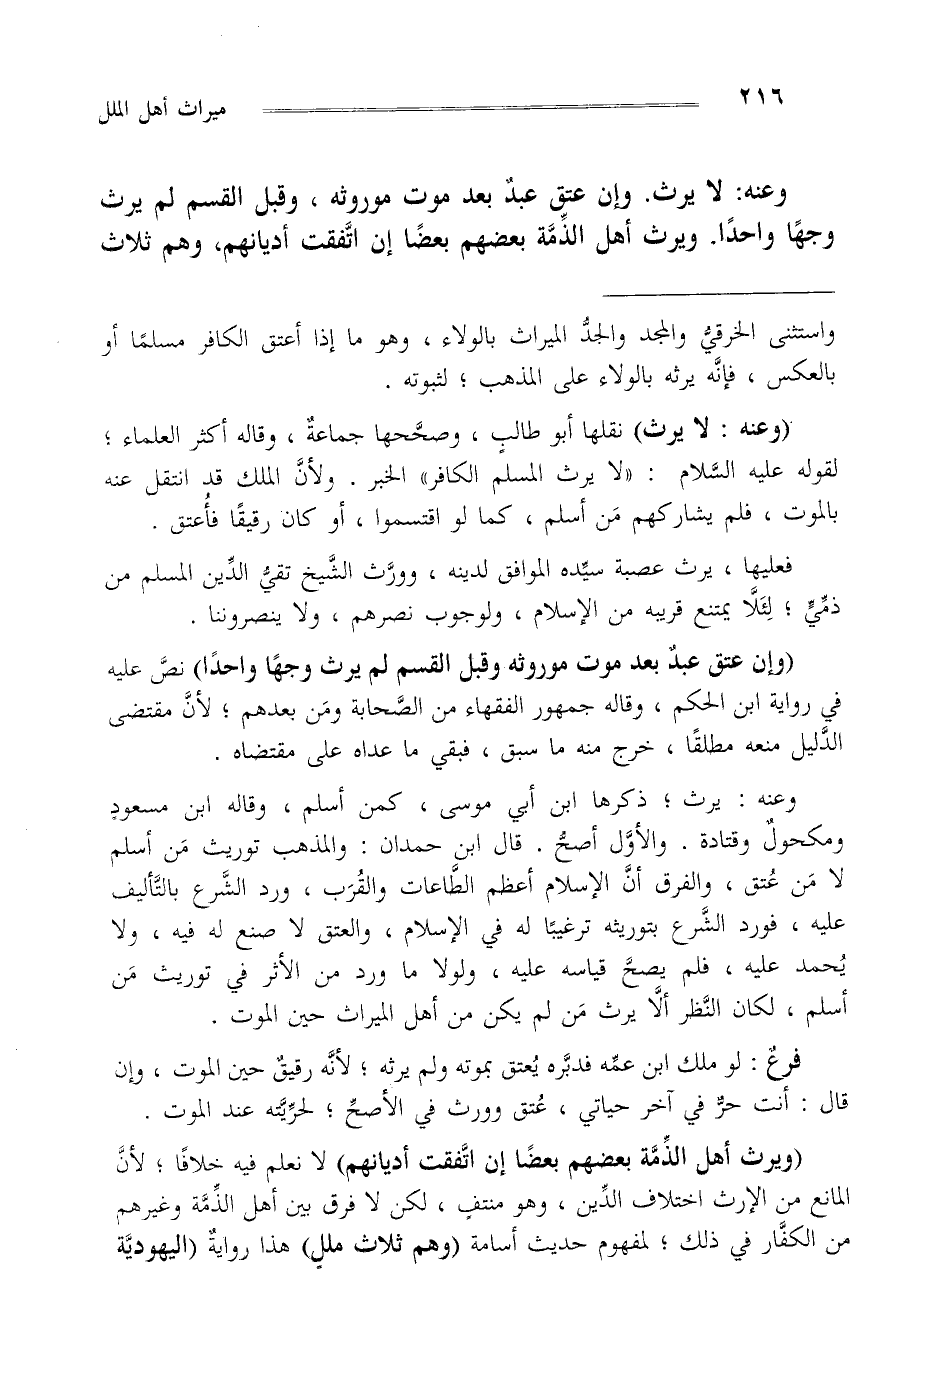 ٢١٦
ميراث أهل الملل
وعنه: لا يرث. وإن عتق عبدٌ بعد موت موروثه ، وقبل القسم لم يرث
وجهًا واحدًا. ويرث أهل الذِّمَّة بعضهم بعضًا إن اتَّفقت أديانهم، وهم ثلاث
واستثنى الخرقيُّ والمجد والجدُّ الميراث بالولاء ، وهو ما إذا أعتق الكافر مسلمًا أو
بالعكس ، فإنَّه يرثه بالولاء على المذهب ؛ لثبوته .
(وعنه : لا يرث) نقلها أبو طالبٍ ، وصحَّحها جماعةٌ ، وقاله أكثر العلماء ؛
لقوله عليه السَّلام : «لا يرث المسلم الكافر» الخبر . ولأنَّ الملك قد انتقل عنه
بالموت ، فلم يشاركهم مَن أسلم ، كما لو اقتسموا ، أو كان رقيقًا فأُعتق .
فعليها ، يرث عصبة سيِّده الموافق لدينه ، وورَّث الشَّيخ تقيُّ الدِّين المسلم من
ذمِّيٍّ ؛ لِئَلَّا يمتنع قريبه من الإسلام ، ولوجوب نصرهم ، ولا ينصروننا .
(وإن عتق عبدٌ بعد موت موروثه وقبل القسم لم يرث وجهًا واحدًا) نصَّ عليه
في رواية ابن الحكم ، وقاله جمهور الفقهاء من الصَّحابة ومَن بعدهم ؛ لأنَّ مقتضى
الدَّليل منعه مطلقًا ، خرج منه ما سبق ، فبقي ما عداه على مقتضاه .
وعنه : يرث ؛ ذكرها ابن أبي موسى ، كمن أسلم ، وقاله ابن مسعودٍ
ومكحولٌ وقتادة . والأوَّل أصحُّ . قال ابن حمدان : والمذهب توريث مَن أسلم
لا مَن عُتق ، والفرق أنَّ الإسلام أعظم الطَّاعات والقُرَب ، ورد الشَّرع بالتَّأليف
عليه ، فورد الشَّرع بتوريثه ترغيبًا له في الإسلام ، والعتق لا صنع له فيه ، ولا
يُحمد عليه ، فلم يصحَّ قياسه عليه ، ولولا ما ورد من الأثر في توريث مَن
أسلم ، لكان النَّظر ألَّا يرث مَن لم يكن من أهل الميراث حين الموت .
فرعٌ : لو ملك ابن عمِّه فدبَّره يُعتق بموته ولم يرثه ؛ لأنَّه رقيقٌ حين الموت ، وإن
قال : أنت حرٌّ في آخر حياتي ، عُتق وورث في الأصحِّ ؛ لحرِّيَّته عند الموت .
(ويرث أهل الذِّمَّة بعضهم بعضًا إن اتَّفقت أديانهم) لا نعلم فيه خلافًا ؛ لأنَّ
المانع من الإرث اختلاف الدِّين ، وهو منتفٍ ، لكن لا فرق بين أهل الذِّمَّة وغيرهم
من الكفَّار في ذلك ؛ لمفهوم حديث أسامة (وهم ثلاث مللٍ) هذا روايةٌ (اليهوديَّة